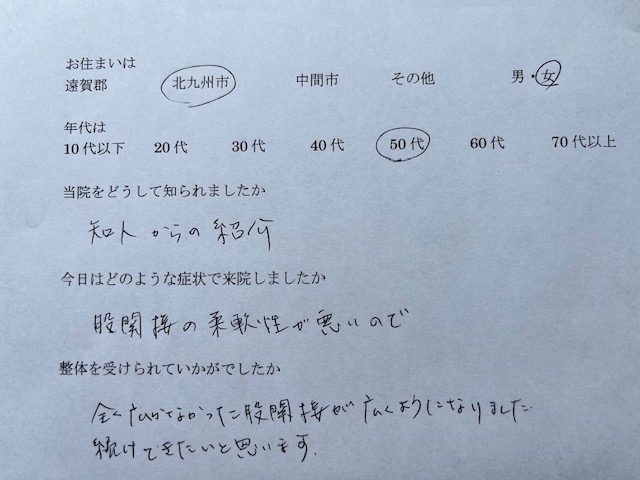 お住まいは
遠賀郡 北九州市 中間市 その他 男・女
年代は
10代以下 20代 30代 40代 50代 60代 70代以上
当院をどうして知られましたか
知人からの紹介
今日はどのような症状で来院しましたか
股関接の柔軟性が悪いので
整体を受けられていかがでしたか
全く広がらなかった股関接が広くようになりました
続けてきたいと思います.